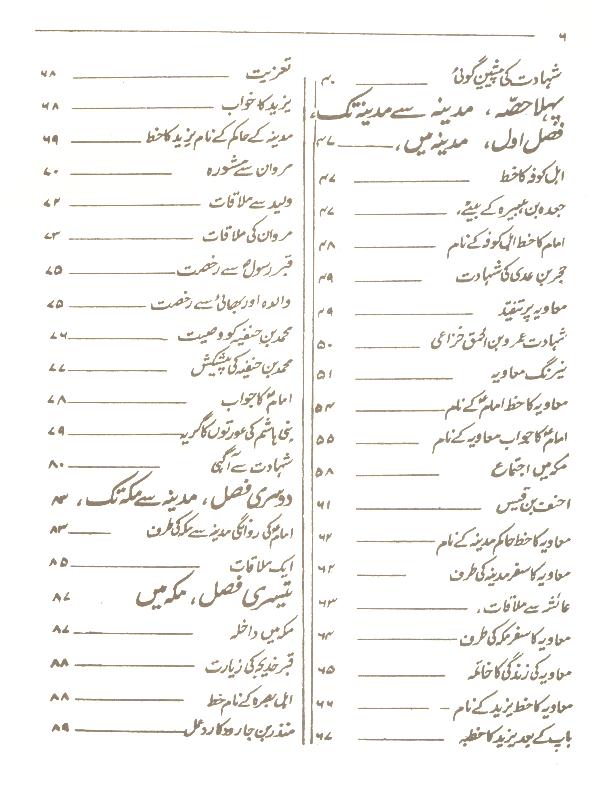 ۶
شہادت کی پیشین گوئی ۴۰
پہلا حصّہ، مدینہ سے مدینہ تک،
فصل اول، مدینہ میں، ۴۷
اہل کوفہ کا خط ۴۷
جعدہ بن ہبیرہ کے بیٹے، ۴۷
امام کا خط اہل کوفہ کے نام ۴۸
حجر بن عدی کی شہادت ۴۹
معاویہ پر تنقید ۴۹
شہادت عمرو بن الحمق خزاعی ۵۰
نیرنگ معاویہ ۵۱
معاویہ کا خط امامؑ کے نام ۵۴
امامؑ کا جواب معاویہ کے نام ۵۵
مکہ میں اجتماع ۵۸
احنف بن قیس ۶۱
معاویہ کا خط حاکم مدینہ کے نام ۶۲
معاویہ کا سفر مدینہ کی طرف ۶۲
عائشہ سے ملاقات، ۶۳
معاویہ کا سفر مکہ کی طرف ۶۴
معاویہ کی زندگی کا خاتمہ ۶۵
معاویہ کا خط یزید کے نام ۶۶
باپ کے بعد یزید کا خطبہ ۶۷
تعزیت ۶۸
یزید کا خواب ۶۸
مدینہ کے حاکم کے نام یزید کا خط ۶۹
مروان سے مشورہ ۷۰
ولید سے ملاقات ۷۲
مروان کی ملاقات ۷۳
قبر رسولؐ سے رخصت ۷۵
والدہ اور بھائی سے رخصت ۷۵
محمد بن حنفیہ کو وصیت ۷۶
محمد بن حنفیہ کی پیشکش ۷۷
امامؑ کا جواب ۷۸
بنی ہاشم کی عورتوں کا گریہ ۷۹
شہادت سے آگہی ۸۰
دوسری فصل، مدینہ سے مکہ تک، ۸۳
امامؑ کی روانگی مدینہ سے مکہ کی طرف ۸۳
ایک ملاقات ۸۵
تیسری فصل، مکہ میں ۸۷
مکہ میں داخلہ ۸۷
قبر خدیجہ کی زیارت ۸۸
اہل بصرہ کے نام خط ۸۸
منذر بن جارود کا ردعمل ۸۹